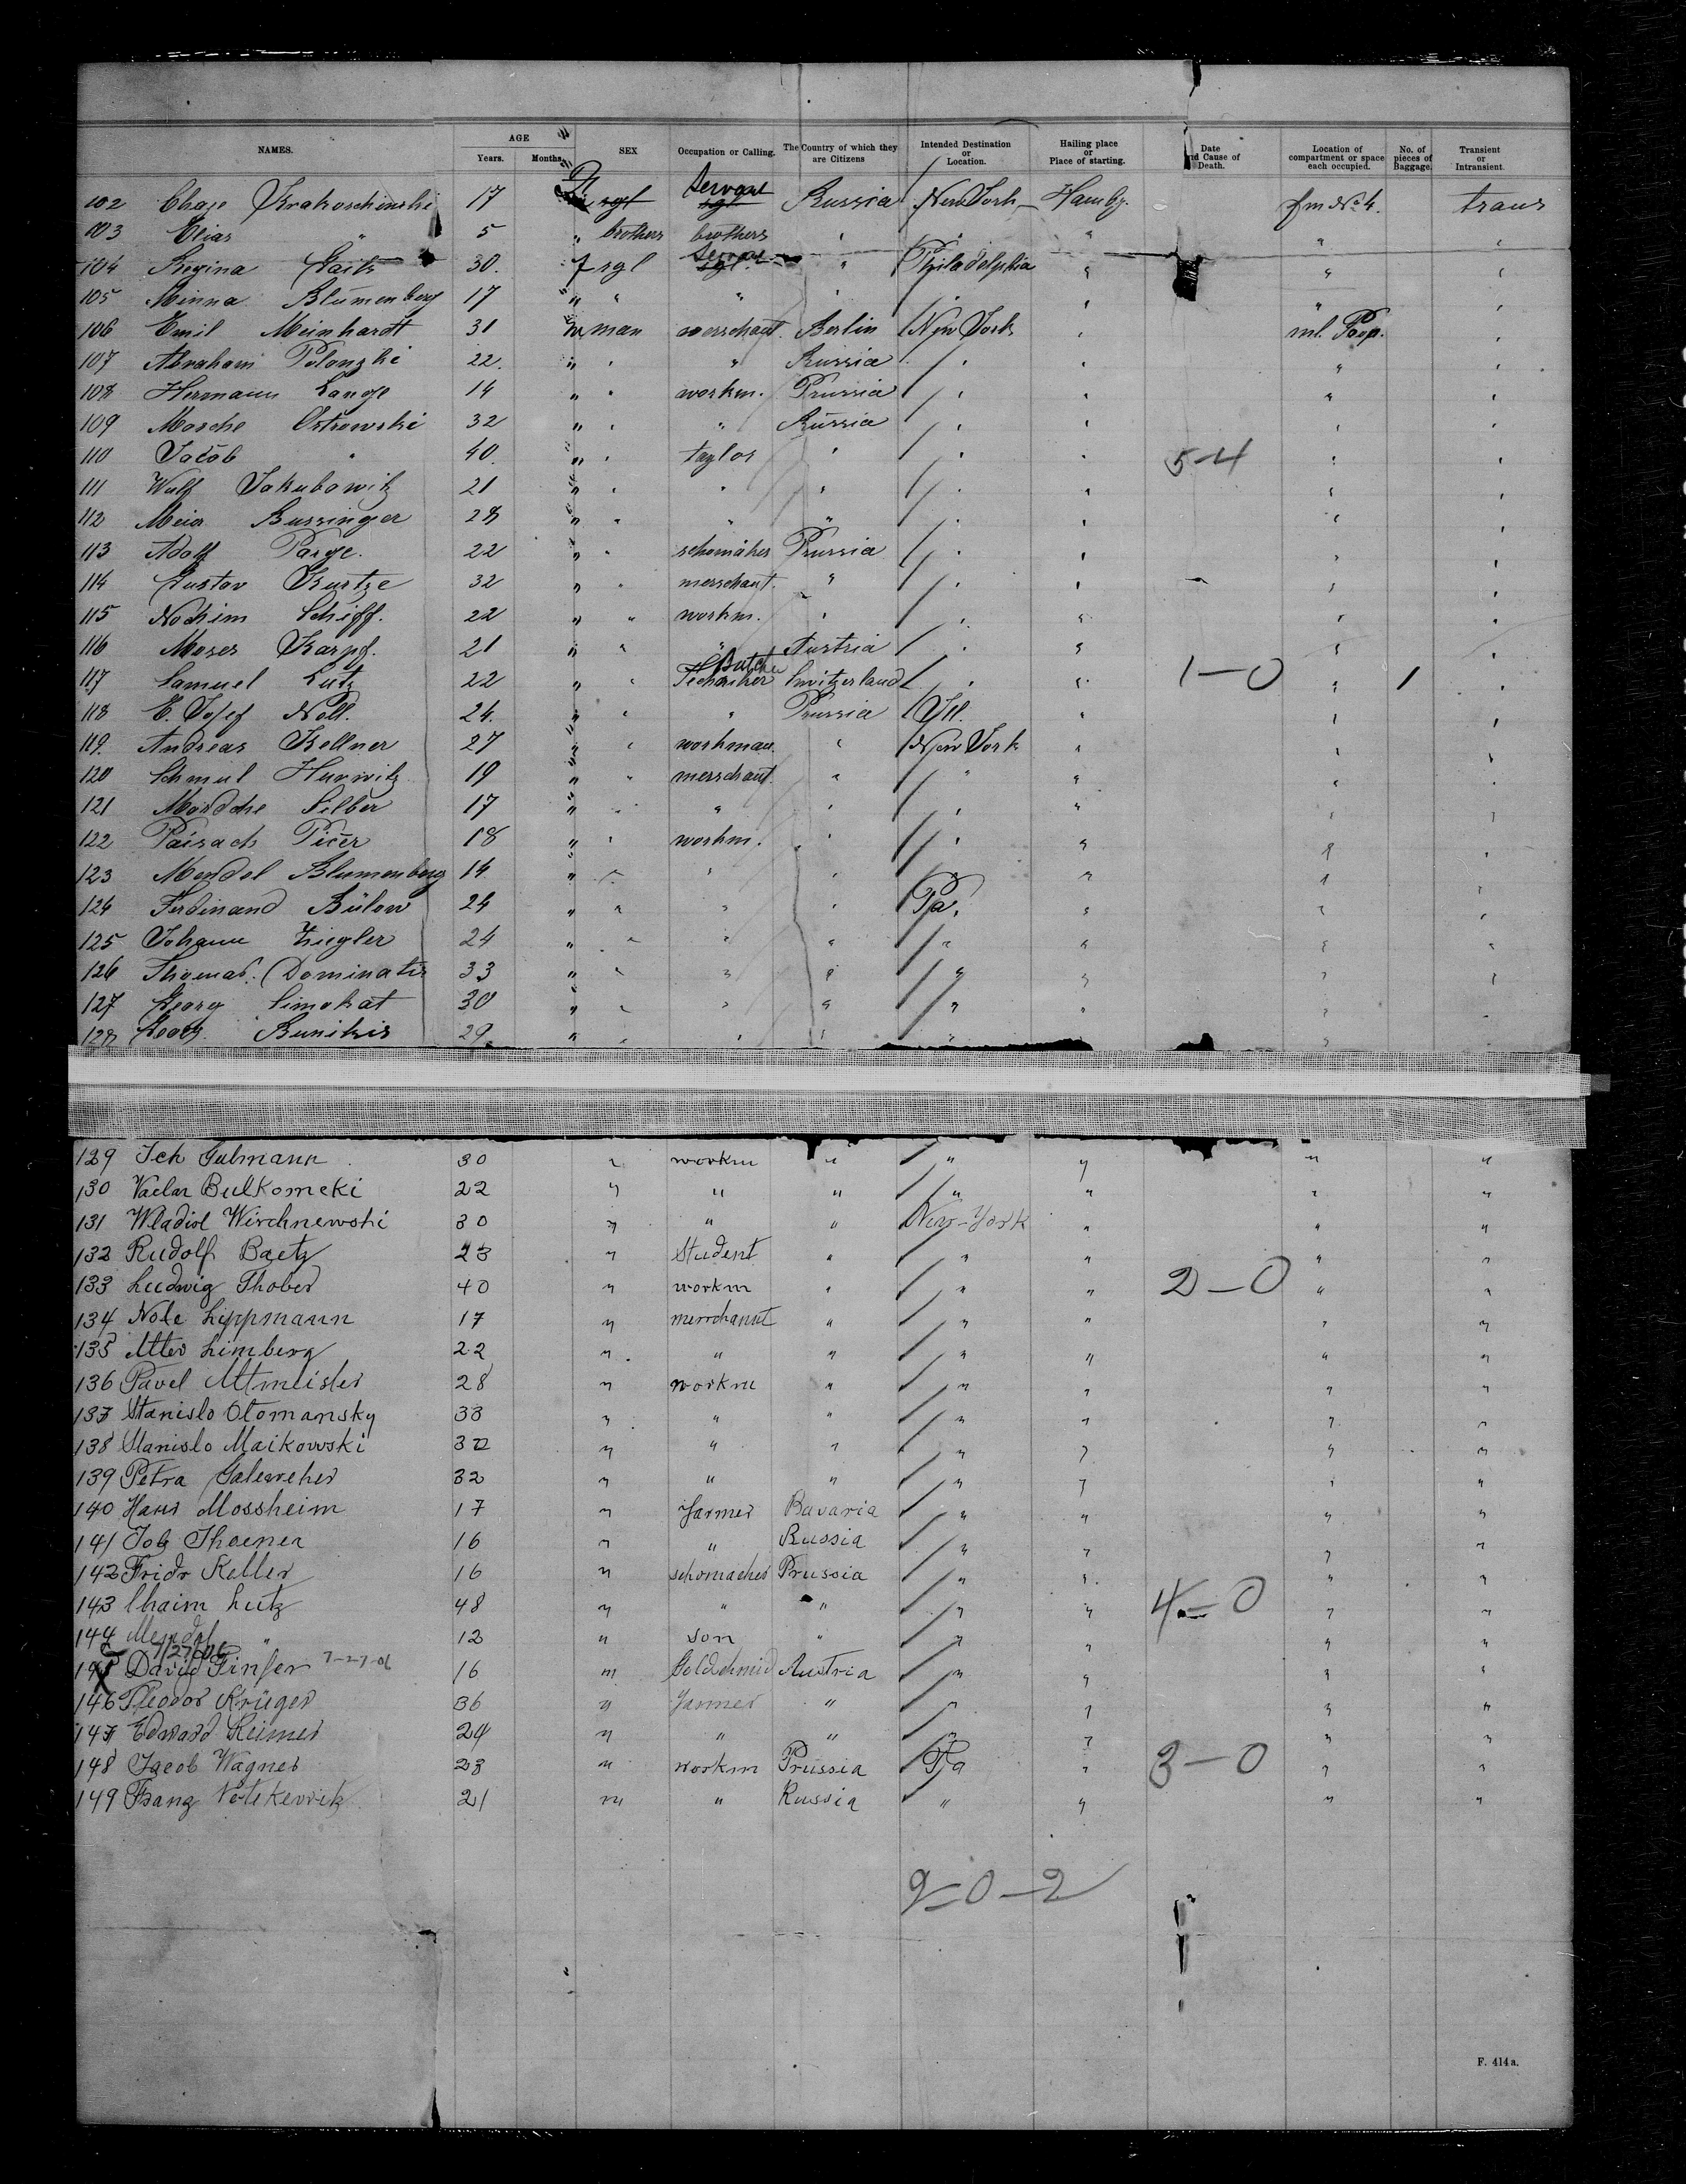 NAMES. AGE Years. Months. SEX Occupation or Calling. The Country of which they are Citizens Intended Destination or Location. Hailing place or Place of starting. Date nd Cause of Death. Location of compartment or space each occupied. No. of pieces of Baggage. Transient or Intransient.
102 Chaje Krakoschinski 17 sgl Servant sgl Russia New York Hambg. trans
103 Elias " 5 " brothers brothers " " " " "
104 Regina 30. f sgl Servant sgl " Philadelphia " " "
105 Minna Blumenberg 17 " " " " " " " "
106 Emil Meinhardt 31 m man merschant. Berlin New York " "
107 Abraham Polanzki 22. " " " Russia " " " "
108 Hermann Lange 14 " " workm. Prussia " " " "
109 Mosche Ostrowski 32 " " " Russia " " " "
110 Jacob " 40 " " taylor " " " 5-4 " "
111 Wulf Jakubowitz 21 " " " " " " " "
112 Meier Bussinger 28 " " " " " " " "
113 Adolf Parge. 22 " " schomaker Prussia " " " "
114 Gustav Kurtze 32 " " merschant. " " " " "
115 Nochim Schiff. 22 " " workm. " " " " "
116 Moses Karpf. 21 " " " Austria " " " "
117 Samuel Lutz 22 " " Butcher Switzerland " " 1-0 " 1 "
118 E. Josef Noll. 24. " " " Prussia Ill. " " "
119. Andreas Kellner 27 " " workman. " New York " " "
120 Schmul Hurwitz 19 " " merschant. " " " " "
121 Mordche Silber 17 " " " " " " " "
122 Paisach Picer 18 " " workm. " " " " "
123 Mendel Blumenberg 14 " " " " " " " "
124 Ferdinand Bülow 24 " " " " Pa. " " "
125 Johann Ziegler 24 " " " " " " " "
126 Thomas Dominatis 33 " " " " " " " "
127 Georg Simokat 30 " " " " " " " "
128 Georg Bunikis 29. " " " " " "
129 Ich Gulmann 30 " workm " " " " "
130 Vaclav Bulkomeki 22 " " " " " " "
131 Wladisl Wirchnewski 30 " " " New-York " " "
132 Rudolf Baetz 23 " Student " " " " "
133 Ludwig Thober 40 " workm " " " 2-0 " "
134 Nole Lippmann 17 " merrchannt " " " " "
135 Alter Limberg 22 " " " " " " "
136 Pavel Altmeister 28 " workm " " " " "
137 Stanislo Otomansky 33 " " " " " " "
138 Stanislo Maikowski 32 " " " " " " "
139 Petra Galeweher 32 " " " " " " "
140 Hans Mossheim 17 " Farmer Bavaria " " " "
141 Job Thoenen 16 " " Russia " " " "
142 Fridr Keller 16 " schomacher Prussia " " " "
143 Chaim Lutz 48 " " " " " 4-0 " "
144 Mendel " 12 " son " " " " "
145 David Finfer 7-27-06 16 m Goldschmid Austria " " " "
146 Theodor Krüger 36 " Farmer " " " " "
147 Edward Reimer 24 " " " " " " "
148 Jacob Wagner 23 " workm Prussia Pa " 3-0 " "
149 Franz 21 m " Russia " " " "
9-0-2
F. 414a.